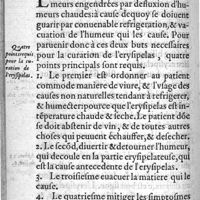 meurs engendrées par defluxion d'hu-
meurs chaudes: à cause dequoy se doiuent
guarir par conuenable refrigeration, & va-
cuation de l'humeur qui les cause. Pour
paruenir donc à ces deux buts necessaires
pour la curation de l'erysipelas, quatre
points principals sont requis.
Quatre
points requis
pour la cu-
ration de
l'erysipelas.
1. Le premier est ordonner au patient
commode maniere de viure, & l'vsage des
causes non naturelles tendant à refrigerer,
& humecter: pource que l'erysipelas est in-
temperature chaude & seche. Le patient dõc
se doit abstenir de vin, & de toutes autres
choses qui peuuent échauffer, & desecher.
2. Le secõd, diuertir & détorner l'humeur,
qui decoule en la partie erysipelateuse, qui
est la cause antecedente de l'erysipelas.
3. Le troisiesme euacuer la matiere qui le
cause.
4. Le quatriesme mitiger les simptosmes